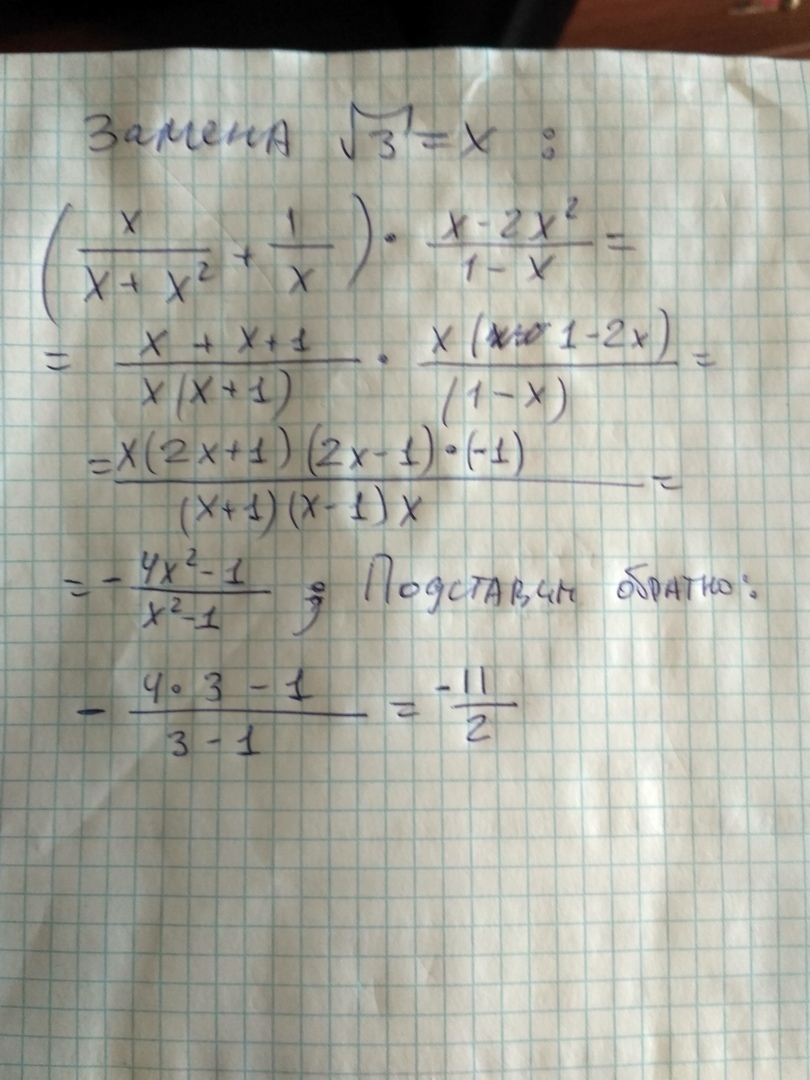 Замена √3 = x :
(x/(x + x²) + 1/x) · (x - 2x²)/(1 - x) =
= (x + x + 1)/(x(x + 1)) · x(1 - 2x)/(1 - x) =
= x(2x + 1)(2x - 1)·(-1)/((x + 1)(x - 1)x) =
= - (4x² - 1)/(x² - 1) ; Подставим обратно:
- (4·3 - 1)/(3 - 1) = -11/2